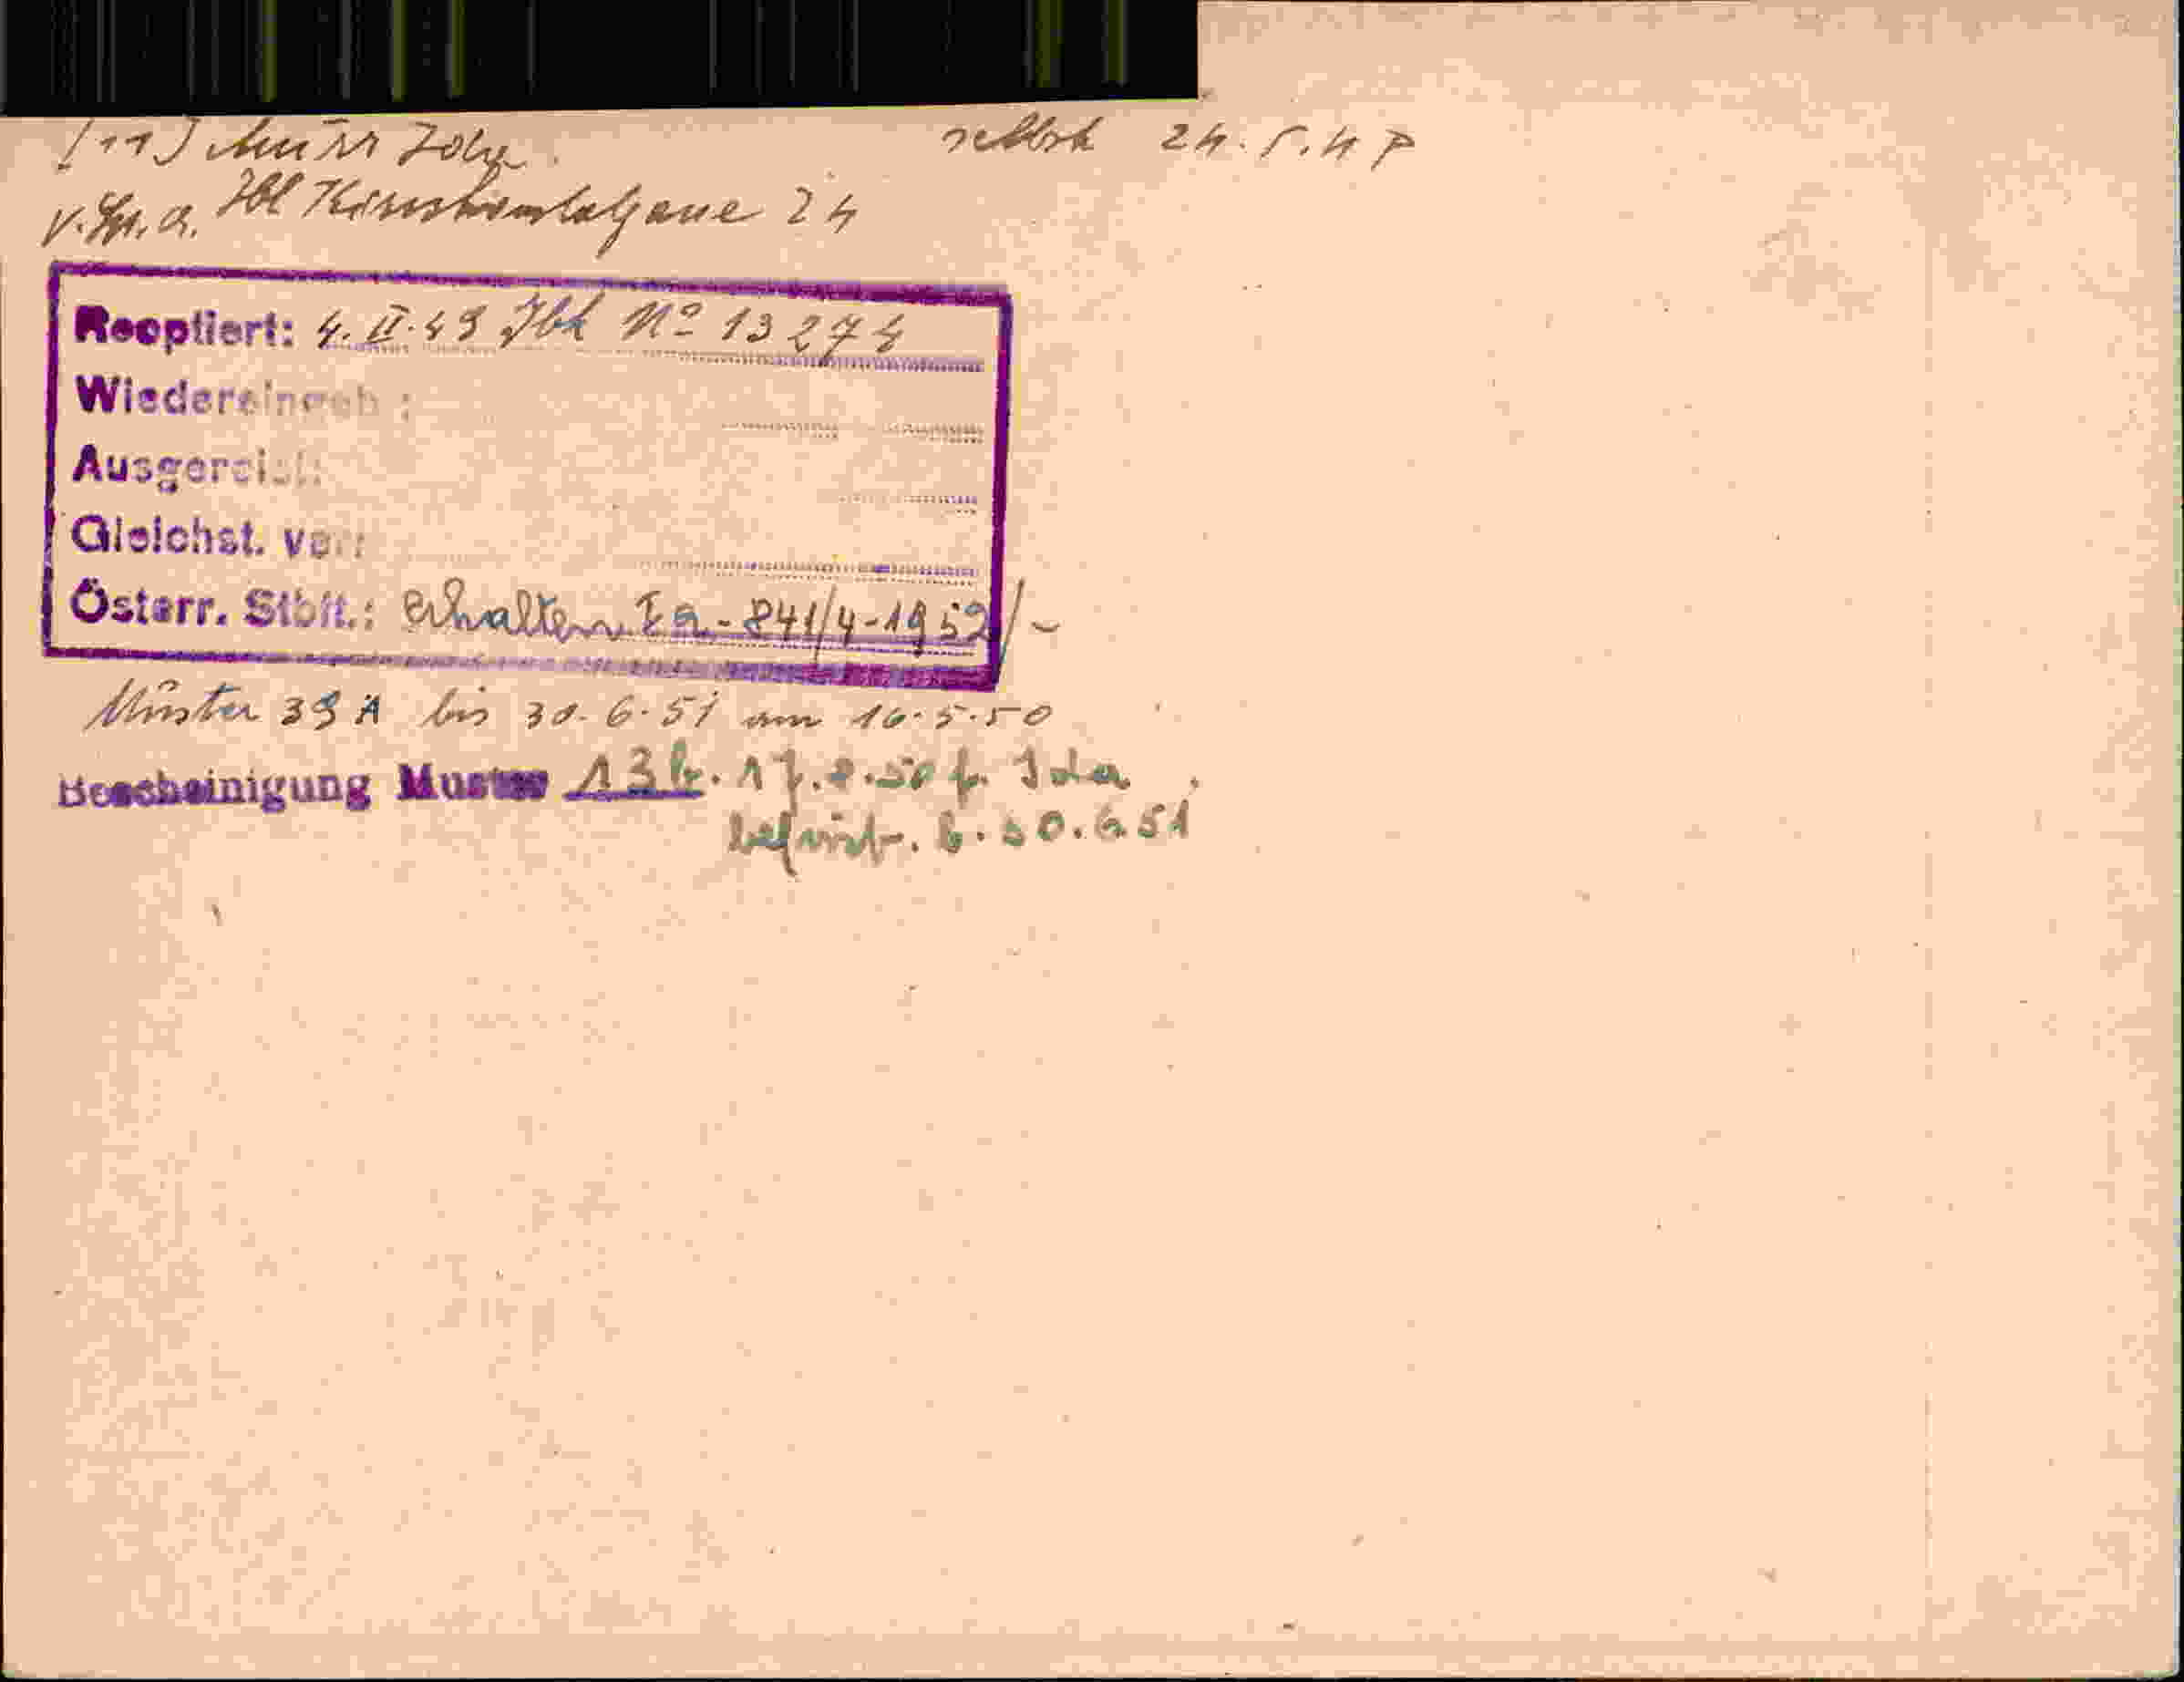 [11] Murr Ida selbst 24.5.4
v. Gr. a. Ibk 24
Reoptiert: 4.II.49 Ibk No 13274
Wiedereingeb.:
Ausgereist:
Gleichst. von:
Österr. Stbft.: Erhalten Ia-841/4-1952/-
Muster 39 A bis 30.6.51 am 16.5.50
Bescheinigung Muster 13b. 17.8.50 f. Ida
befrist. b. 30.6.51